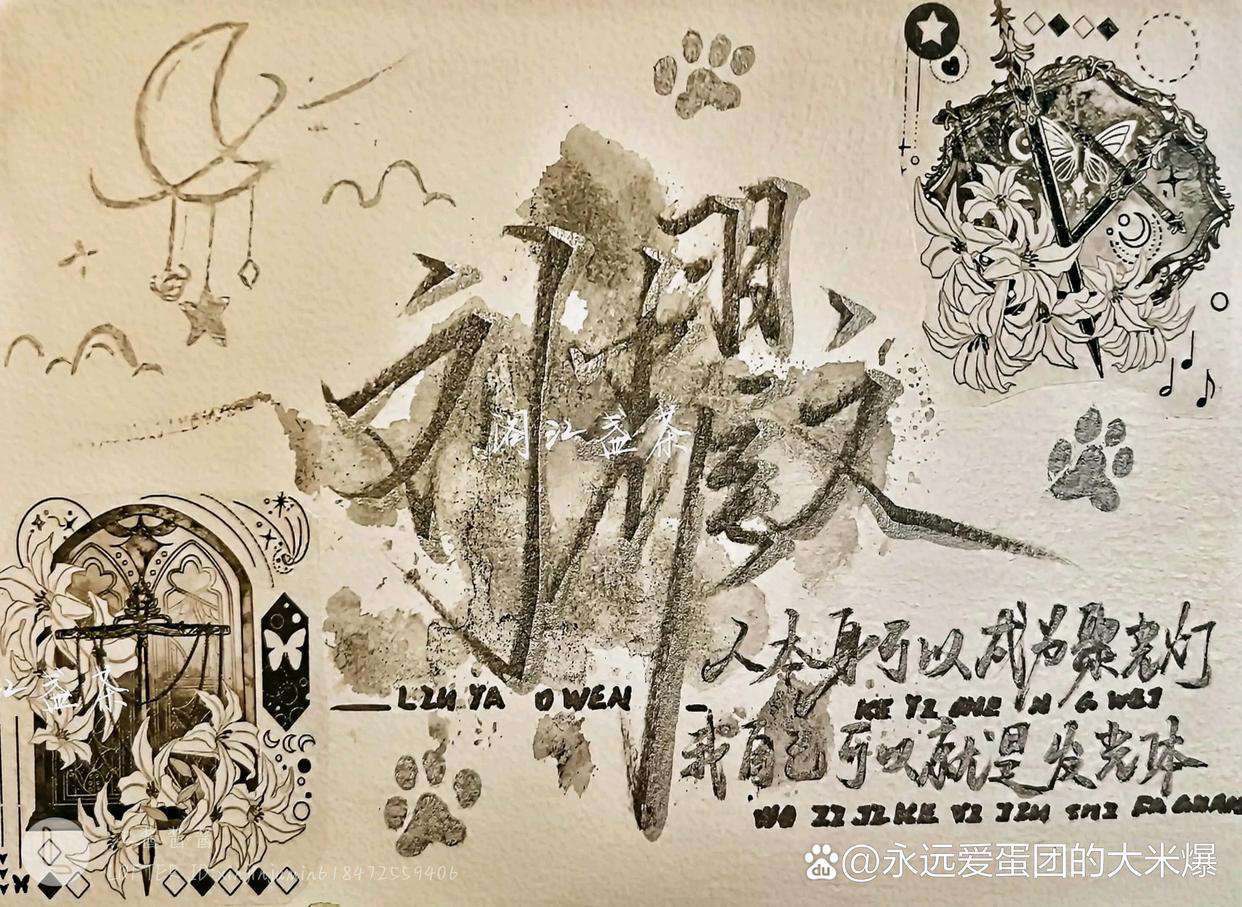 刘耀文
江盏茶
人本身可以成为聚光灯
江盏茶
LIU YA O WEN
KE YI CHE N G WEI
我自己可以就是发光体
WO ZI JI KE YI JIU SHI FA GUAN
@永远爱蛋团的大米爆